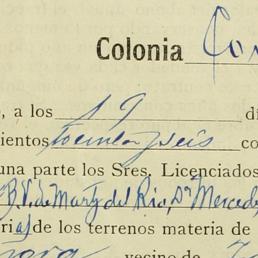 Colonia
, a los 19 dí
ientos treinta y seis co
una parte los Sres. Licenciados
B. V. de Marty del Rio, Dª Mercede
rias de los terrenos materia de
vecino de